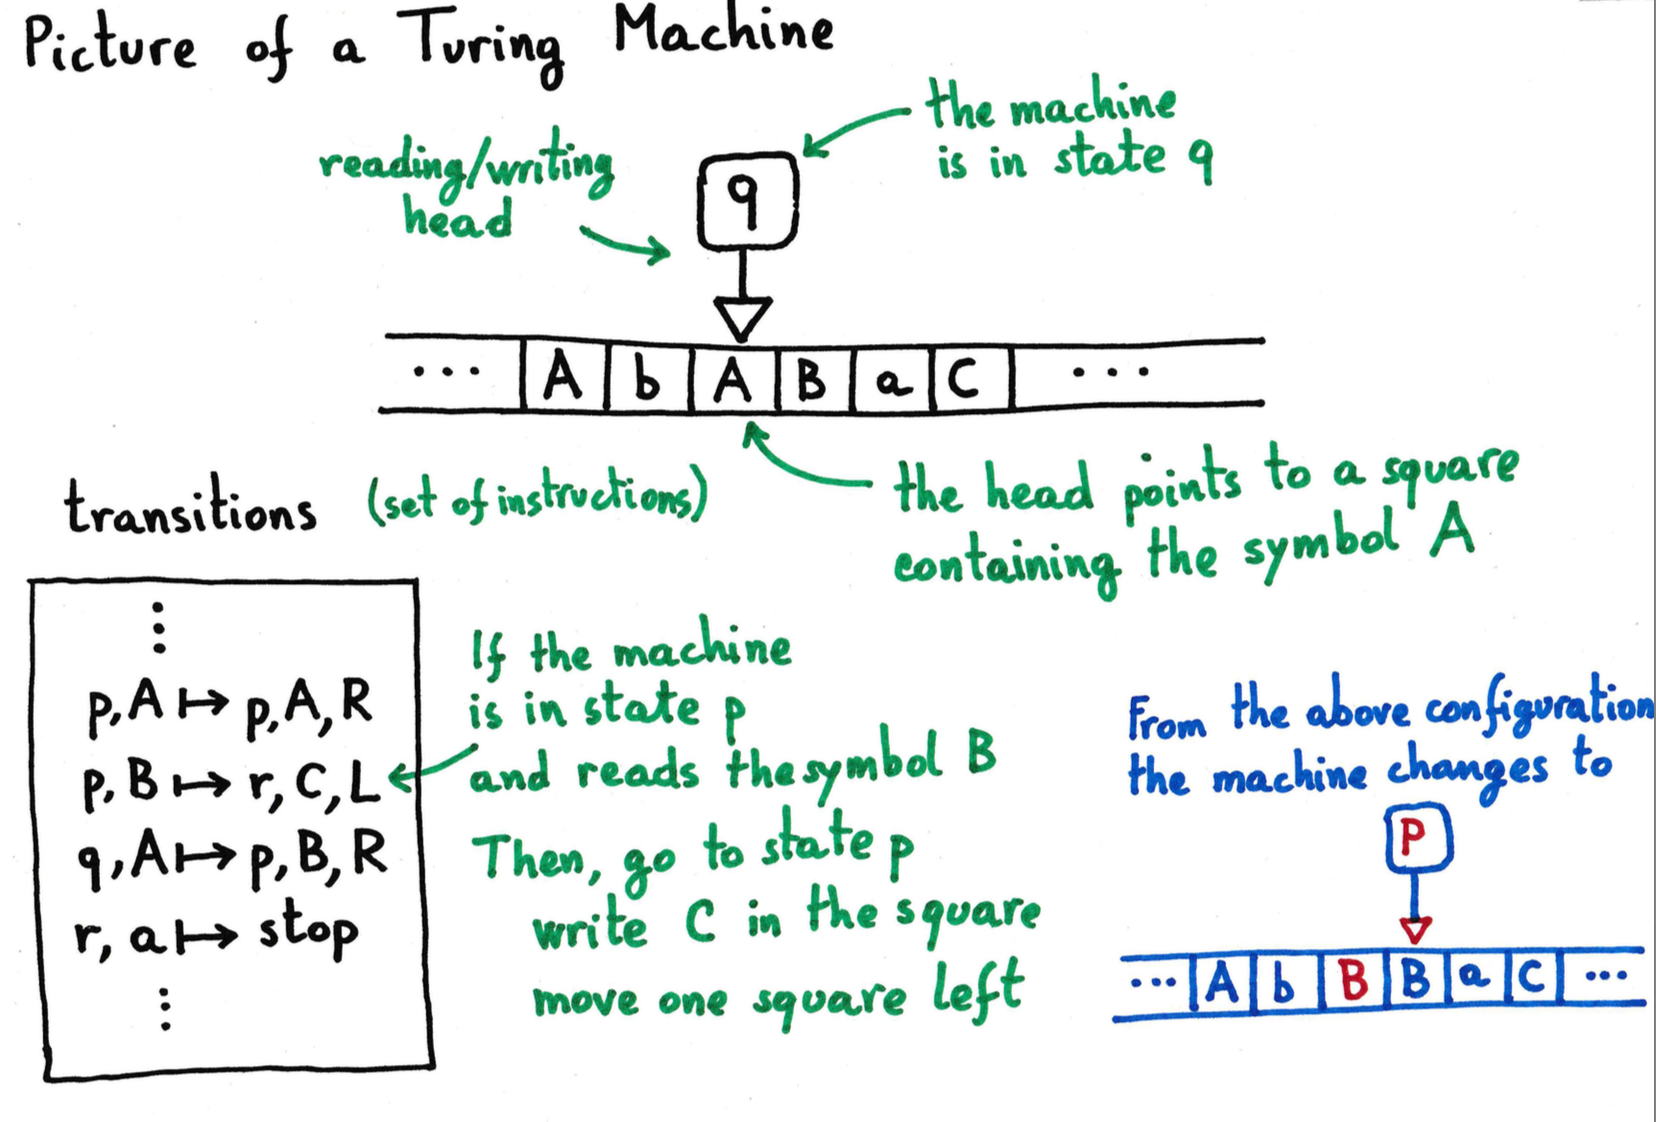 Picture of a Turing Machine
the machine
is in state q
reading/writing
head
q
... A b A B a C ...
the head points to a square
containing the symbol A
transitions (set of instructions)
⋮
p, A ↦ p, A, R
p, B ↦ r, C, L
q, A ↦ p, B, R
r, a ↦ stop
⋮
If the machine
is in state p
and reads the symbol B
Then, go to state p
write C in the square
move one square left
From the above configuration
the machine changes to
P
... A b B B a C ...